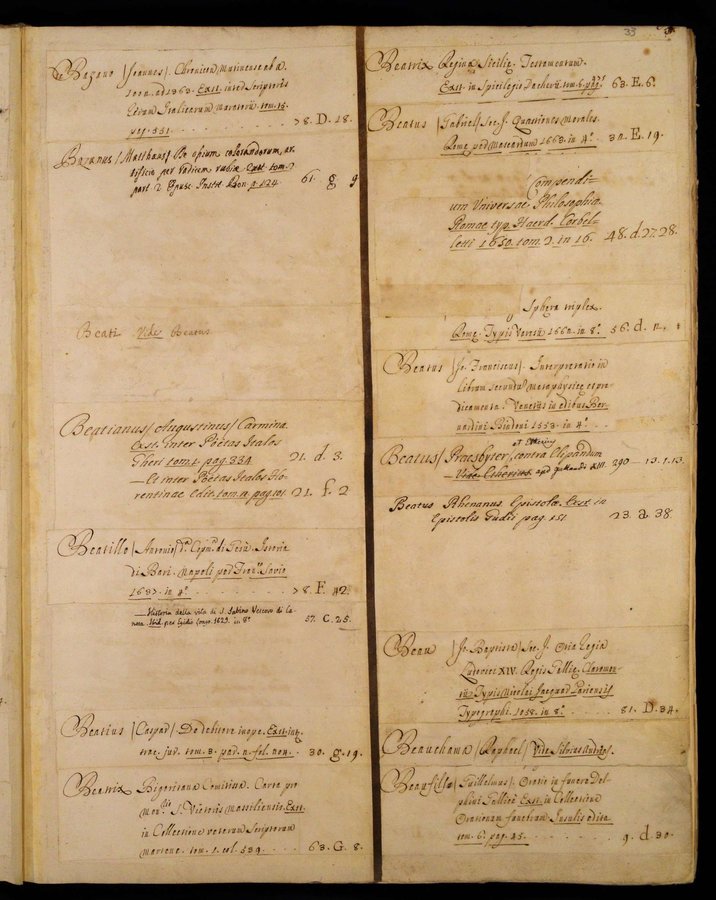 33
de Bazano (Joannes). Chronicon Mutinense ab a.
ad 1363. Exst. inter Scriptores
tom. 15.
pag. 551. 78. D. 18.
Bazanus (Matthaus)
tificio per radicem rubiæ Exst. tom. 2
part 2. Opusc. Instit. Bon. p. 124. 61. g. 9
Beati Vide Beatus
Beatianus (Augustinus) Carmina
Exst. inter Poëtas Italos
Gheri tom. 1. pag. 334 21. d. 3.
— Et inter Poëtas Italos Flo-
rentinae edit. tom. 2. pag. 101. 21. f. 2
Beatillo (Antonio) Istoria
di Bari. Napoli per Fran.co Savio
1637. in 4.o 78. F. 42.
— Historia della vita di S. Sabino Vescovo di Ca-
nosa Ibid. per Egidio Longo 1629. in 8.o 57. C. 25.
Beatius (Caspar). De debitore inope. Exst. int.
trac. jud. tom. 3. par. 2. fol. 30. g. 19.
Beatrix Bigoritana Comitissa. Carta pro
S. Victoris Massiliensis Exst.
in Collectione veterum Scriptorum
Martene. tom. 1. col. 539. 63. G. 8.
Beatrix Regina Siciliæ. Testamentum.
Exst. in Spicilegio Dacherii tom. 6. pag. 63. E. 6.
Beatus (Gabriel) Soc. J. Quæstiones Morales.
Romæ, per Mascardum 1663. in 4.o 30. E. 19.
Compendi-
um Universae Philosophia.
Romae typ. Haerd. Corbel-
letti 1650. tom. 2. in 16. 48. d. 27. 28.
Sphæra triplex.
Romæ. Typis Varesii 1662. in 8.o 56. d. 12.
Beatus (Jo. Franciscus). Interpretatio in
librum secundum metaphysicæ et præ-
dicamenta. Venetiis in ædibus Ber-
nardini Bindoni 1553. in 4.o
et Etherius
Beatus (Praesbyter) contra Elipandum
— Vide Etherius. apd Gallandi XIII. 290 — 13. 1. 13.
Beatus Rhenanus Epistolæ. Exst. in
Epistolis Gudii pag. 151. 23. a. 38.
Beau (Jo. Baptista) Soc. J. Oratio Regia
Ludovici XIV. Regis Galliæ. Claromon-
Typis Nicolai Jacquard
Typographi. 1658. in 8.o 81. D. 34.
Beauchama (Raphael) Vide
Beaufilo (Guilhelmus). Oratio in funere Del-
phini Galliæ Exst. in Collectione
Orationum funebrum Insulis edita
tom. 6. pag. 45. 9. d. 30.